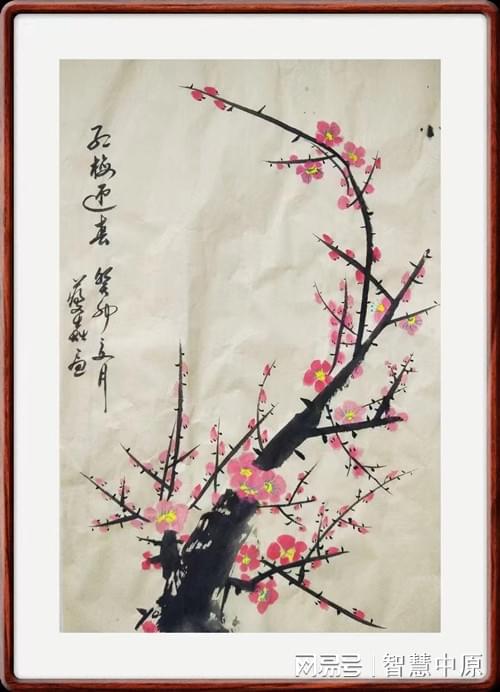 红梅迎春 癸卯 月
画
网易号 | 智慧中原